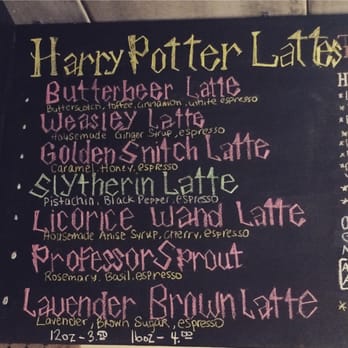 Harry Potter Lattes
Butterbeer Latte
Butterscotch, toffee, cinnamon, white espresso
Weasley Latte
Housemade Ginger Syrup, espresso
Golden Snitch Latte
Caramel, Honey, espresso
Slytherin Latte
Pistachio, Black Pepper, espresso
Licorice Wand Latte
Housemade Anise Syrup, Cherry, espresso
Professor Sprout
Rosemary, Basil, espresso
Lavender Brown Latte
Lavender, Brown Sugar, espresso
12oz - 3.50 16oz - 4.00